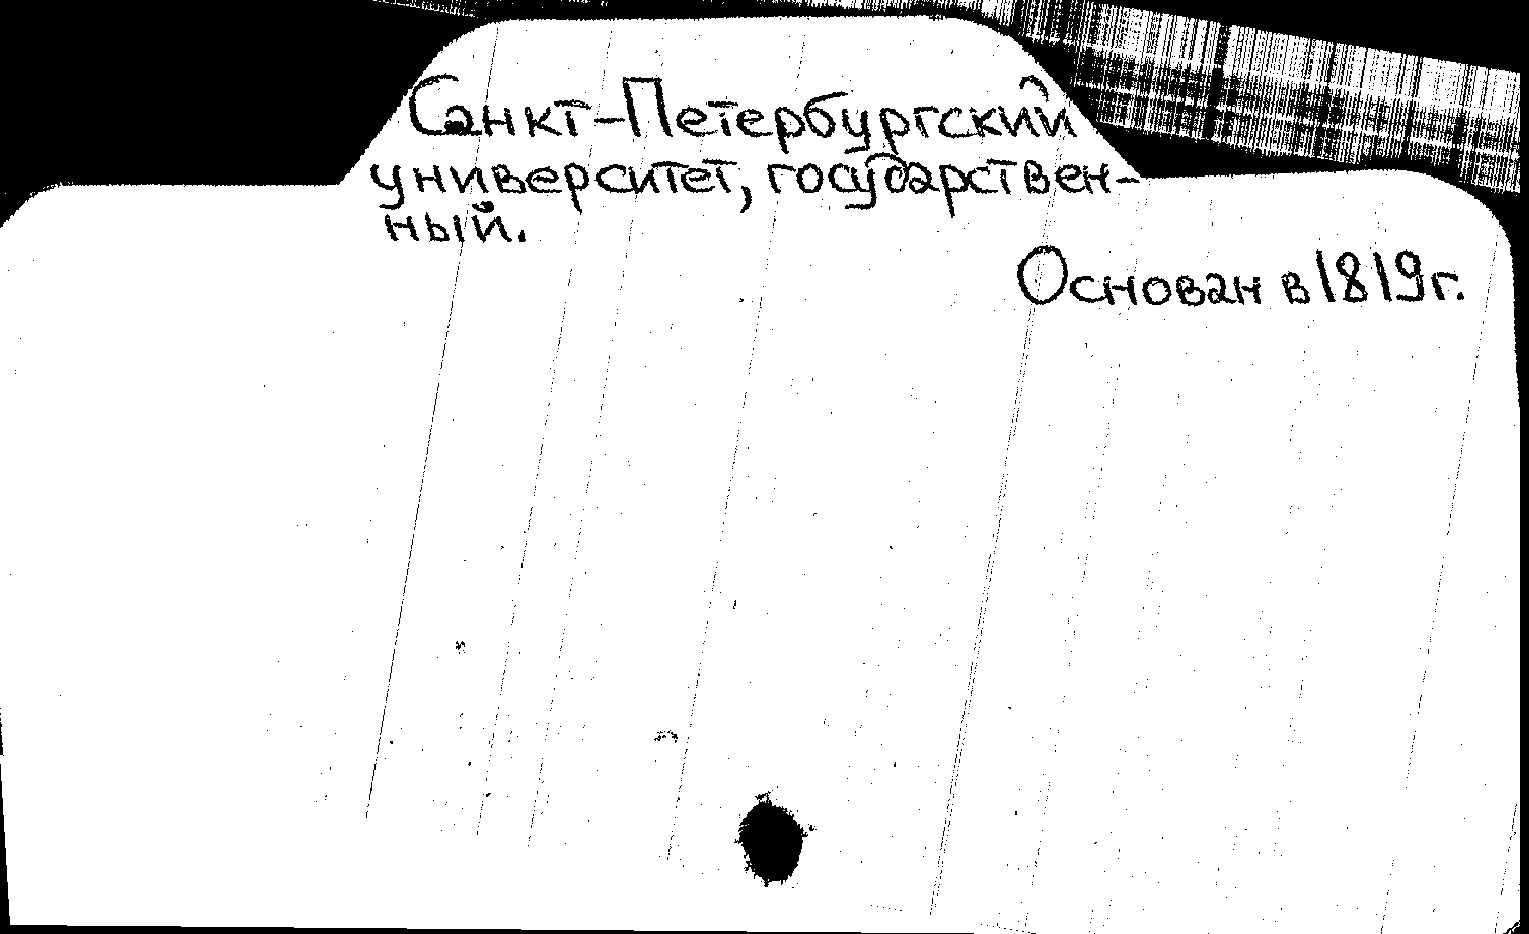 Санкт-Петербургский
университет, государствен-
ный.
Основан в 1819г.